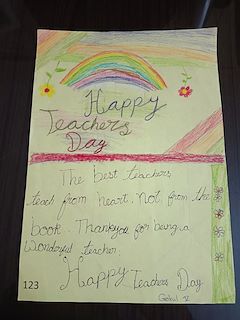 Happy
Teachers
Day
The best teachers
teach from heart, not from the
book. Thankyou for being a
wonderful teacher.
"Happy Teachers Day
123